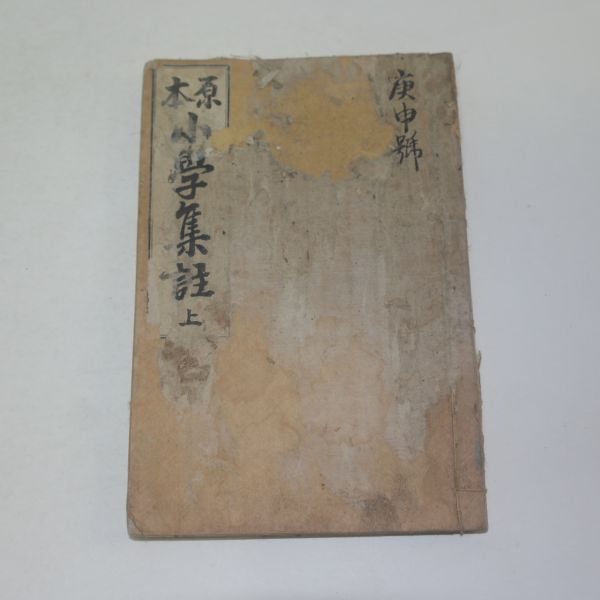 原本
小學集註
上
庚申號